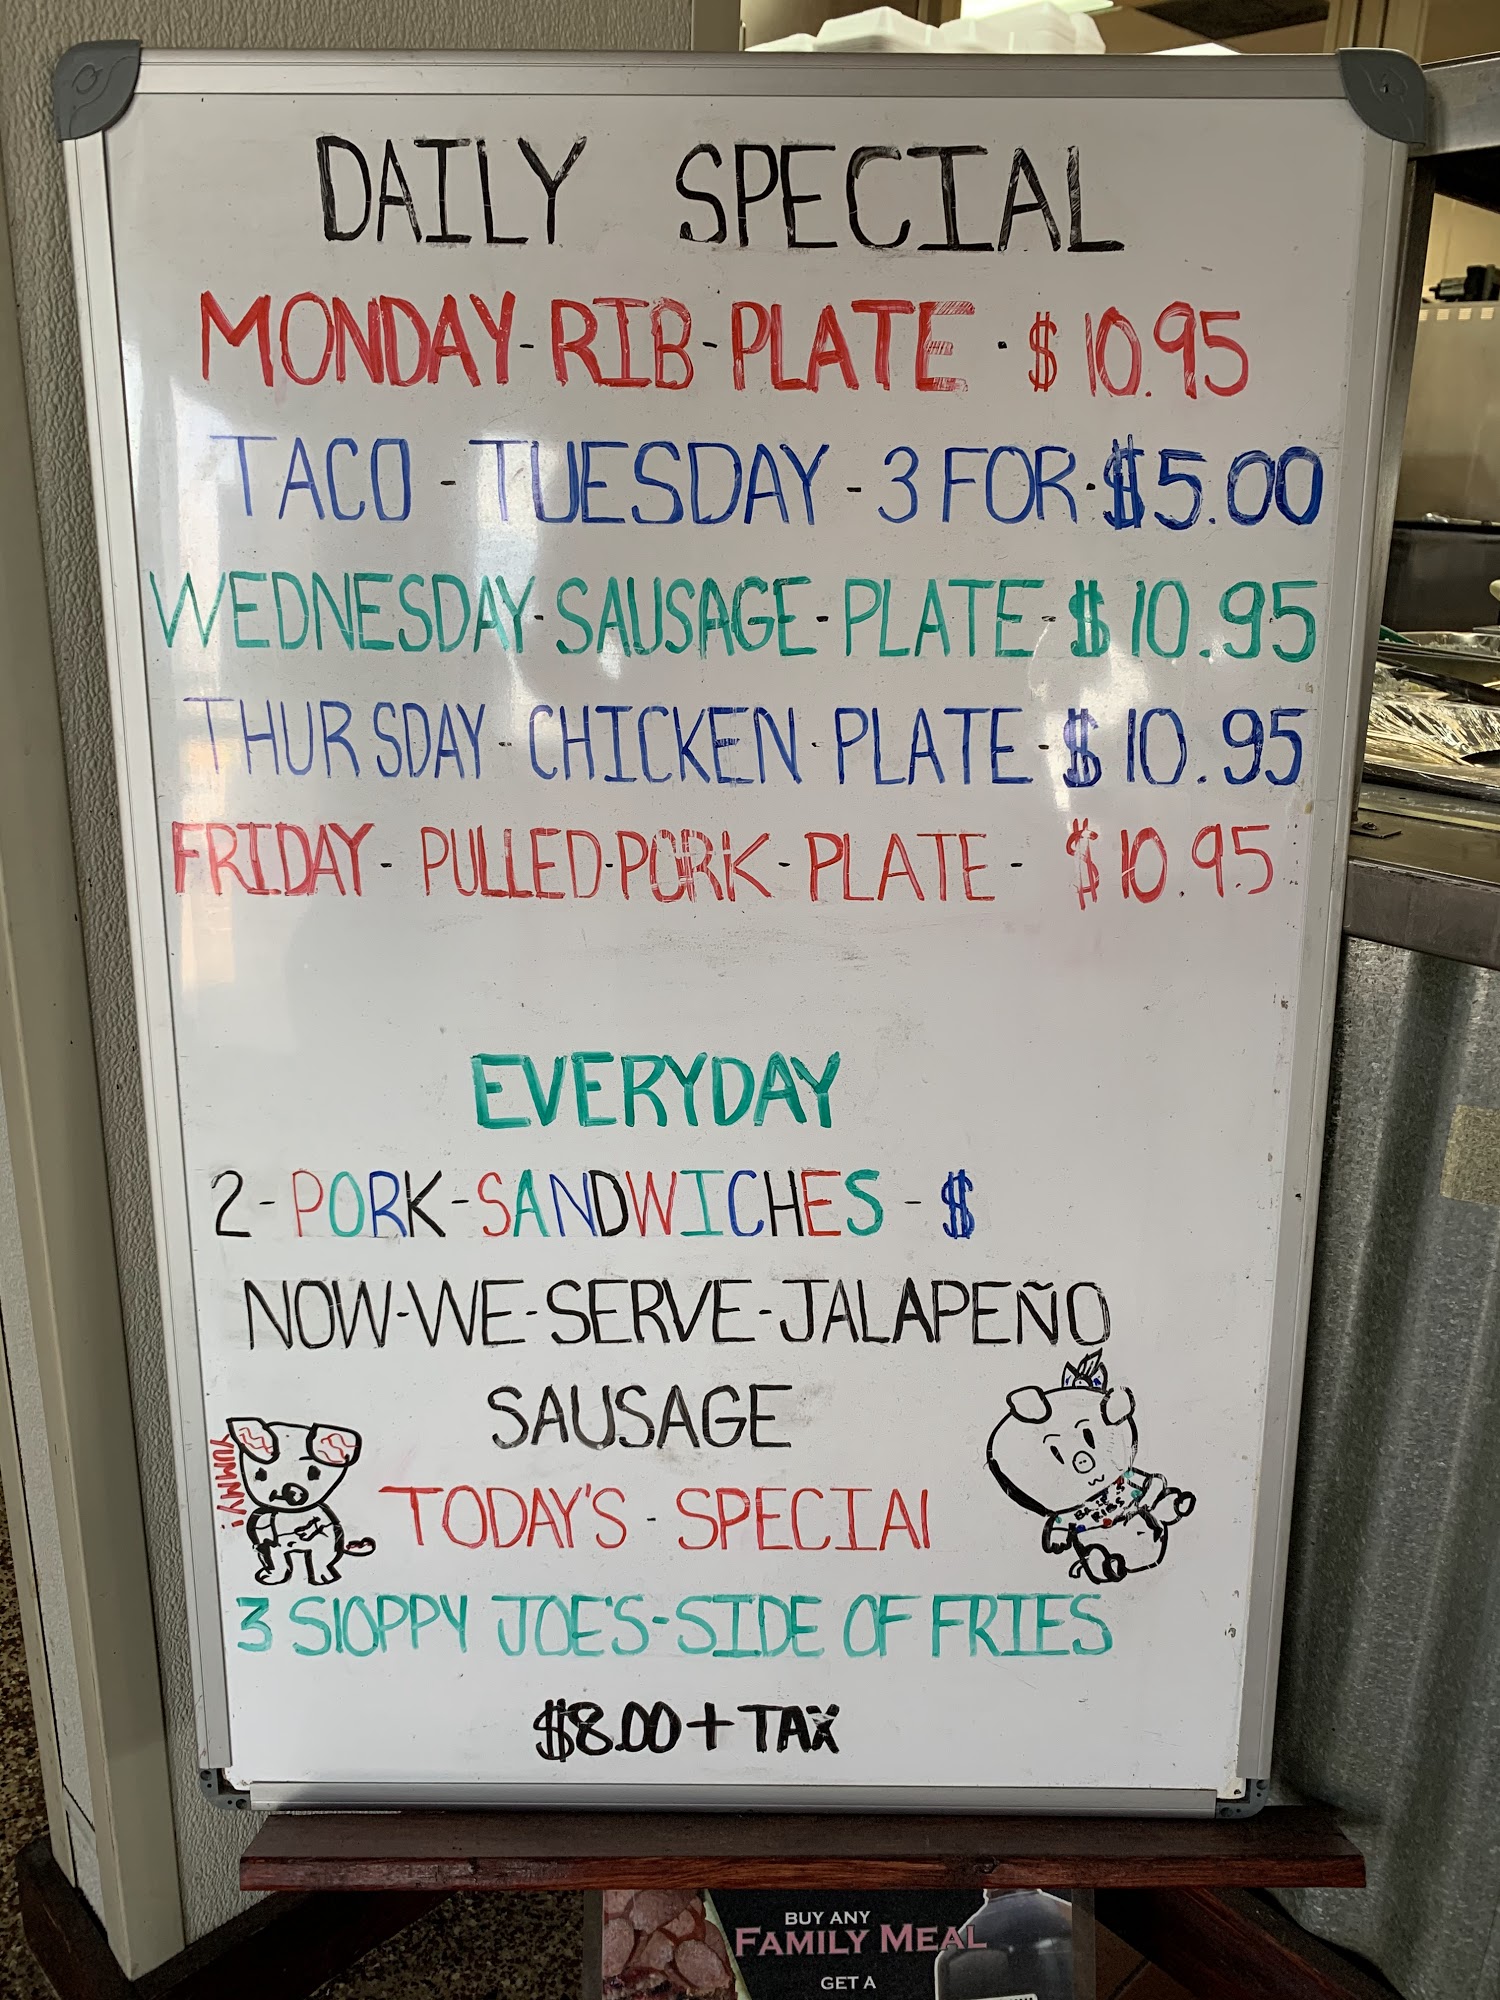 DAILY SPECIAL
MONDAY-RIB-PLATE - $10.95
TACO - TUESDAY - 3 FOR-$5.00
WEDNESDAY-SAUSAGE-PLATE-$10.95
THURSDAY-CHICKEN-PLATE-$10.95
FRIDAY-PULLED-PORK-PLATE- $10.95
EVERYDAY
2-PORK-SANDWICHES - $
NOW-WE-SERVE-JALAPEÑO
SAUSAGE
YUMMY!
TODAY'S - SPECIAl
3 SlOPPY JOE'S-SIDE OF FRIES
$8.00+TAX
BUY ANY
FAMILY MEAL
GET A